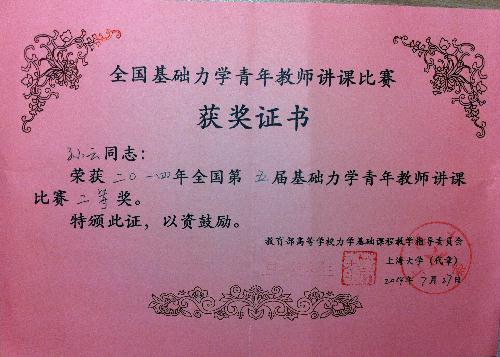 全国基础力学青年教师讲课比赛
获奖证书
孙云同志：
荣获二〇一四年全国第五届基础力学青年教师讲课
比赛二等奖。
特颁此证，以资鼓励。
教育部高等学校力学基础课程教学指导委员会
上海大学（代章）
2014年7月27日